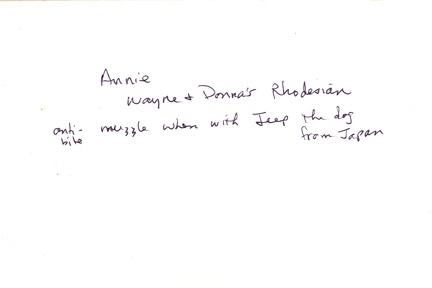 Annie
Wayne + Donna's Rhodesian
anti-bite muzzle when with Jeep the dog
from Japan